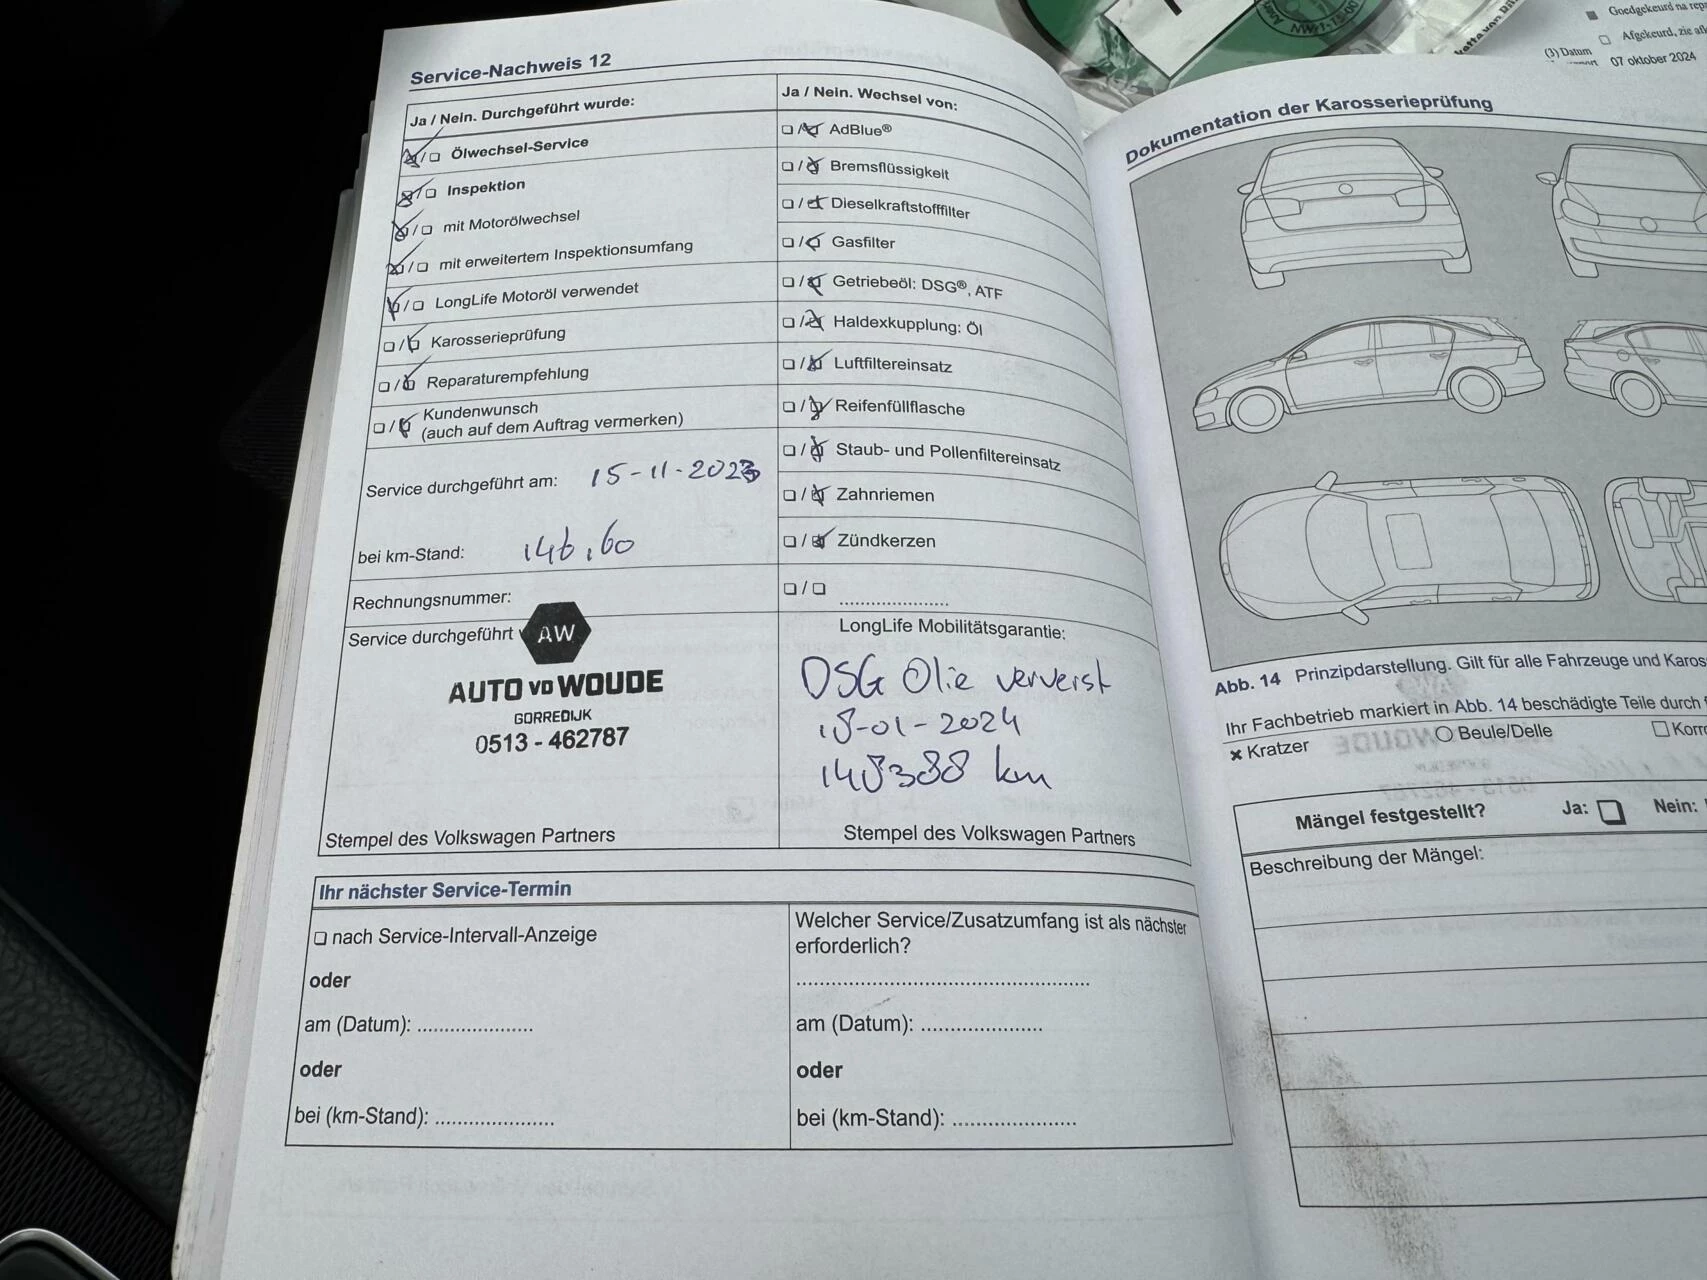 Service-Nachweis 12
Ja / Nein. Durchgeführt wurde:
Ölwechsel-Service
Inspektion
mit Motorölwechsel
mit erweitertem Inspektionsumfang
LongLife Motoröl verwendet
Karosserieprüfung
Reparaturempfehlung
Kundenwunsch
(auch auf dem Auftrag vermerken)
Service durchgeführt am: 15-11-2023
bei km-Stand: 146.60
Rechnungsnummer:
Service durchgeführt
AW
AUTO VD WOUDE
GORREDIJK
0513 - 462787
Stempel des Volkswagen Partners
Ja / Nein. Wechsel von:
AdBlue®
Bremsflüssigkeit
Dieselkraftstofffilter
Gasfilter
Getriebeöl: DSG®, ATF
Haldexkupplung: Öl
Luftfiltereinsatz
Reifenfüllflasche
Staub- und Pollenfiltereinsatz
Zahnriemen
Zündkerzen
LongLife Mobilitätsgarantie:
DSG Olie ververst
18-01-2024
148388 km
Stempel des Volkswagen Partners
Ihr nächster Service-Termin
nach Service-Intervall-Anzeige
oder
am (Datum): .....................
oder
bei (km-Stand): .....................
Welcher Service/Zusatzumfang ist als nächster
erforderlich?
am (Datum): .....................
oder
bei (km-Stand): .....................
Goedgekeurd na
Afgekeurd, zie
(3) Datum
07 oktober 2024
Dokumentation der Karosserieprüfung
Abb. 14 Prinzipdarstellung. Gilt für alle Fahrzeuge und
Ihr Fachbetrieb markiert in Abb. 14 beschädigte Teile durch
Kratzer
Beule/Delle
Mängel festgestellt? Ja: Nein:
Beschreibung der Mängel: